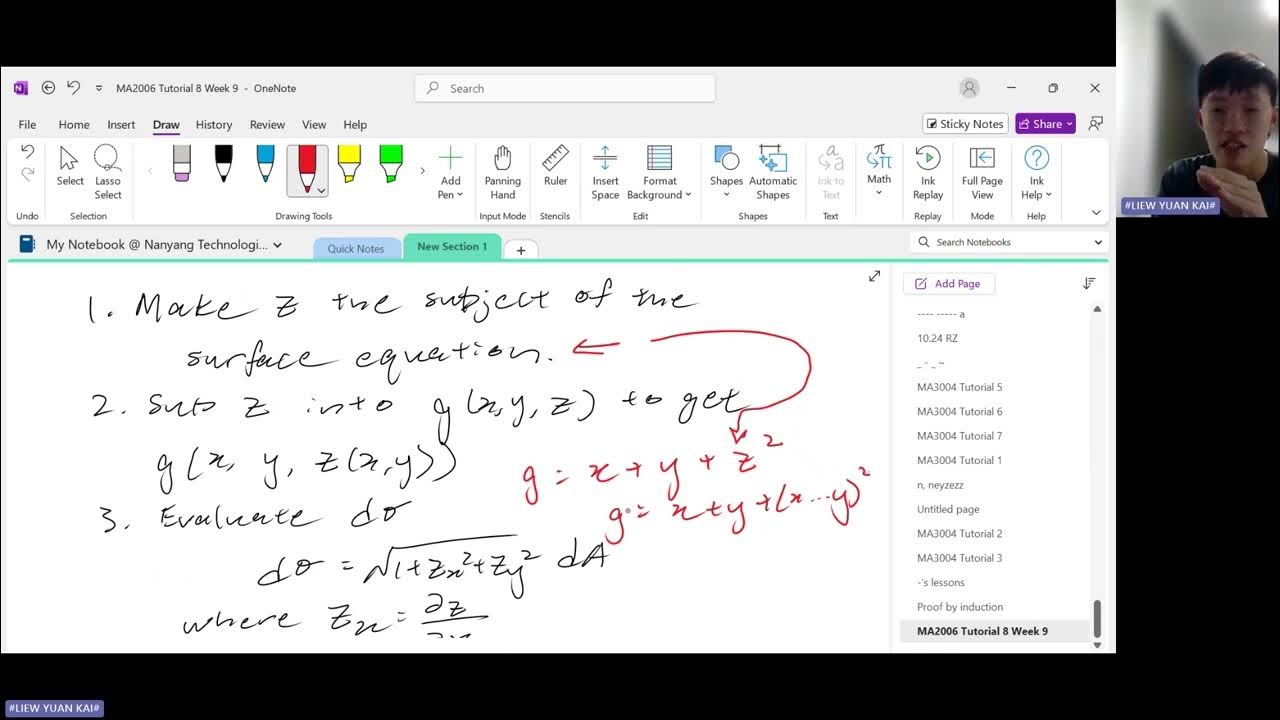 MA2006 Tutorial 8 Week 9 - OneNote
Search
File Home Insert Draw History Review View Help
Sticky Notes
Share
Select
Lasso Select
Add Pen
Panning Hand
Ruler
Insert Space
Format Background
Shapes
Automatic Shapes
Ink to Text
Math
Ink Replay
Full Page View
Ink Help
Undo Selection Drawing Tools Input Mode Stencils Edit Shapes Text Replay Mode Help
My Notebook @ Nanyang Technologi...
Quick Notes
New Section 1
Search Notebooks
1. Make z the subject of the
surface equation.
2. Sub z into g(x, y, z) to get
g(x, y, z(x,y))
g = x + y + z²
3. Evaluate dσ
g = x + y + (x...y)²
dσ = √1+zx²+zy² dA
where zx = ∂z
Add Page
---- ----- a
10.24 RZ
_ - _ ~
MA3004 Tutorial 5
MA3004 Tutorial 6
MA3004 Tutorial 7
MA3004 Tutorial 1
n, neyzezz
Untitled page
MA3004 Tutorial 2
MA3004 Tutorial 3
-'s lessons
Proof by induction
MA2006 Tutorial 8 Week 9
#LIEW YUAN KAI#
#LIEW YUAN KAI#